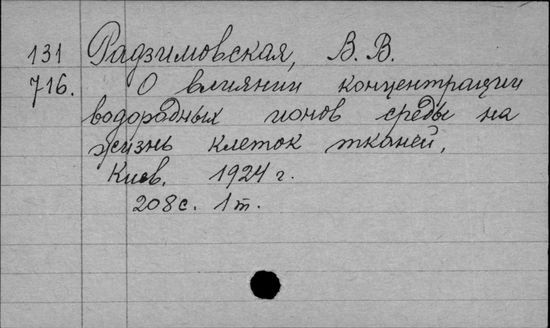 131 Радзимовская, В. В.
716. О влиянии концентрации
водородных ионов среды на
жизнь клеток тканей.
Киев. 1924 г.
208 с. 1 т.